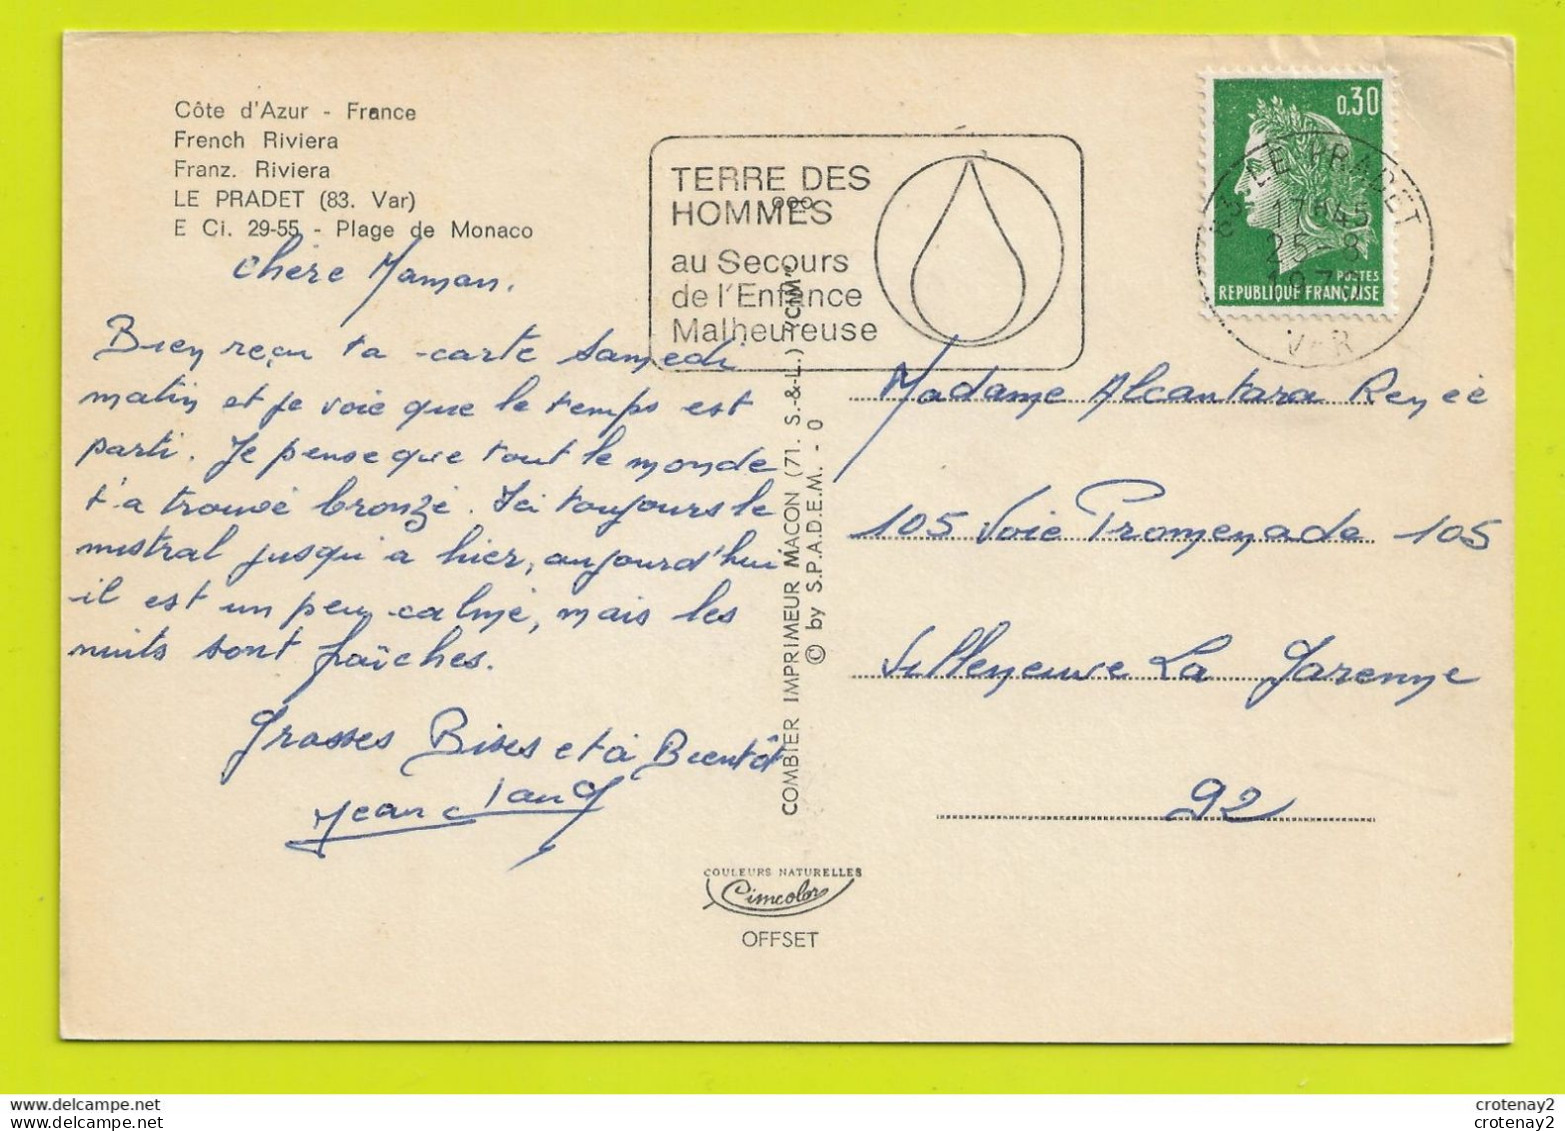 Côte d'Azur - France
French Riviera
Franz. Riviera
LE PRADET (83. Var)
E Ci. 29-55 - Plage de Monaco
TERRE DES
HOMMES
au Secours
de l'Enfance
Malheureuse
0,30
POSTES
REPUBLIQUE FRANÇAISE
83 LE PRADET
17H45
25-8
VAR
Chère Maman.
Bien reçu ta carte samedi
matin et je voie que le temps est
parti. Je pense que tout le monde
t'a trouvé bronzé. Ici toujours le
mistral jusqu'a hier, aujourd'hui
il est un peu calmé, mais les
nuits sont fraîches.
Grosses Bises et à Bientôt
Jean Claud
COMBIER IMPRIMEUR MACON (71. S.-&-L.) "CIM"
© by S.P.A.D.E.M. - 0
Madame Alcantara Renée
105 Voie Promenade 105
Villeneuve La Garenne
92
COULEURS NATURELLES
Cimcolor
OFFSET
delcampe.net
crotenay2
delcampe.net
crotenay2